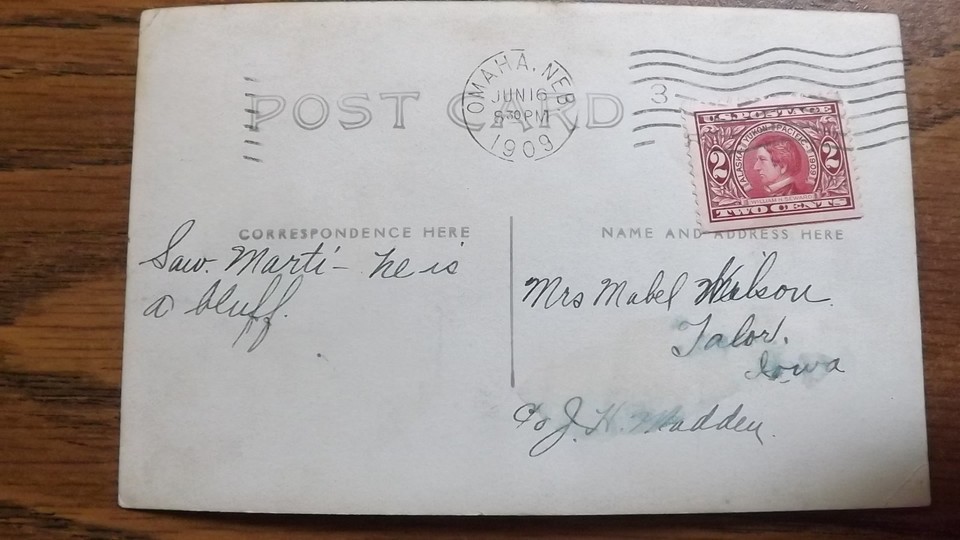 POST CARD
OMAHA, NEB.
JUN 16
8 30 PM
1909
3
U.S. POSTAGE
ALASKA YUKON PACIFIC 1909
2 2
WILLIAM H. SEWARD
TWO CENTS
CORRESPONDENCE HERE
NAME AND ADDRESS HERE
Saw. Marti - he is
a bluff.
Mrs Mabel Wilson.
Talor.
Iowa
c/o J. H. Madden.